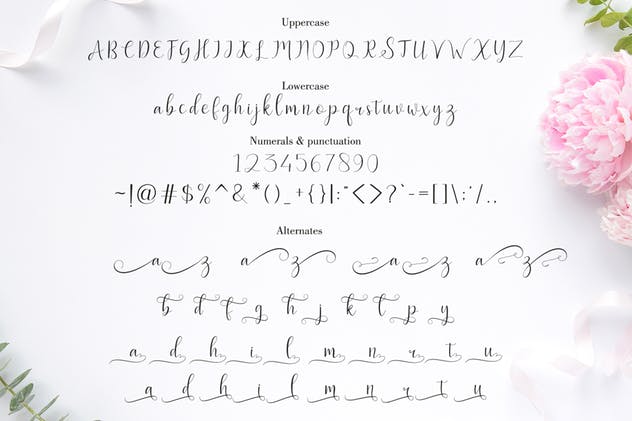 Uppercase
ABCDEFGHIJKLMNOPQRSTUVWXYZ
Lowercase
abcdefghijklmnopqrstuvwxyz
Numerals & punctuation
1234567890
~!@#$%^&*()_+{}|:"<>?`-=[]\;'/..
Alternates
a z a z a z a z
b d f g h j k t p y
a d h i l m n r t u
a d h i l m n r t u